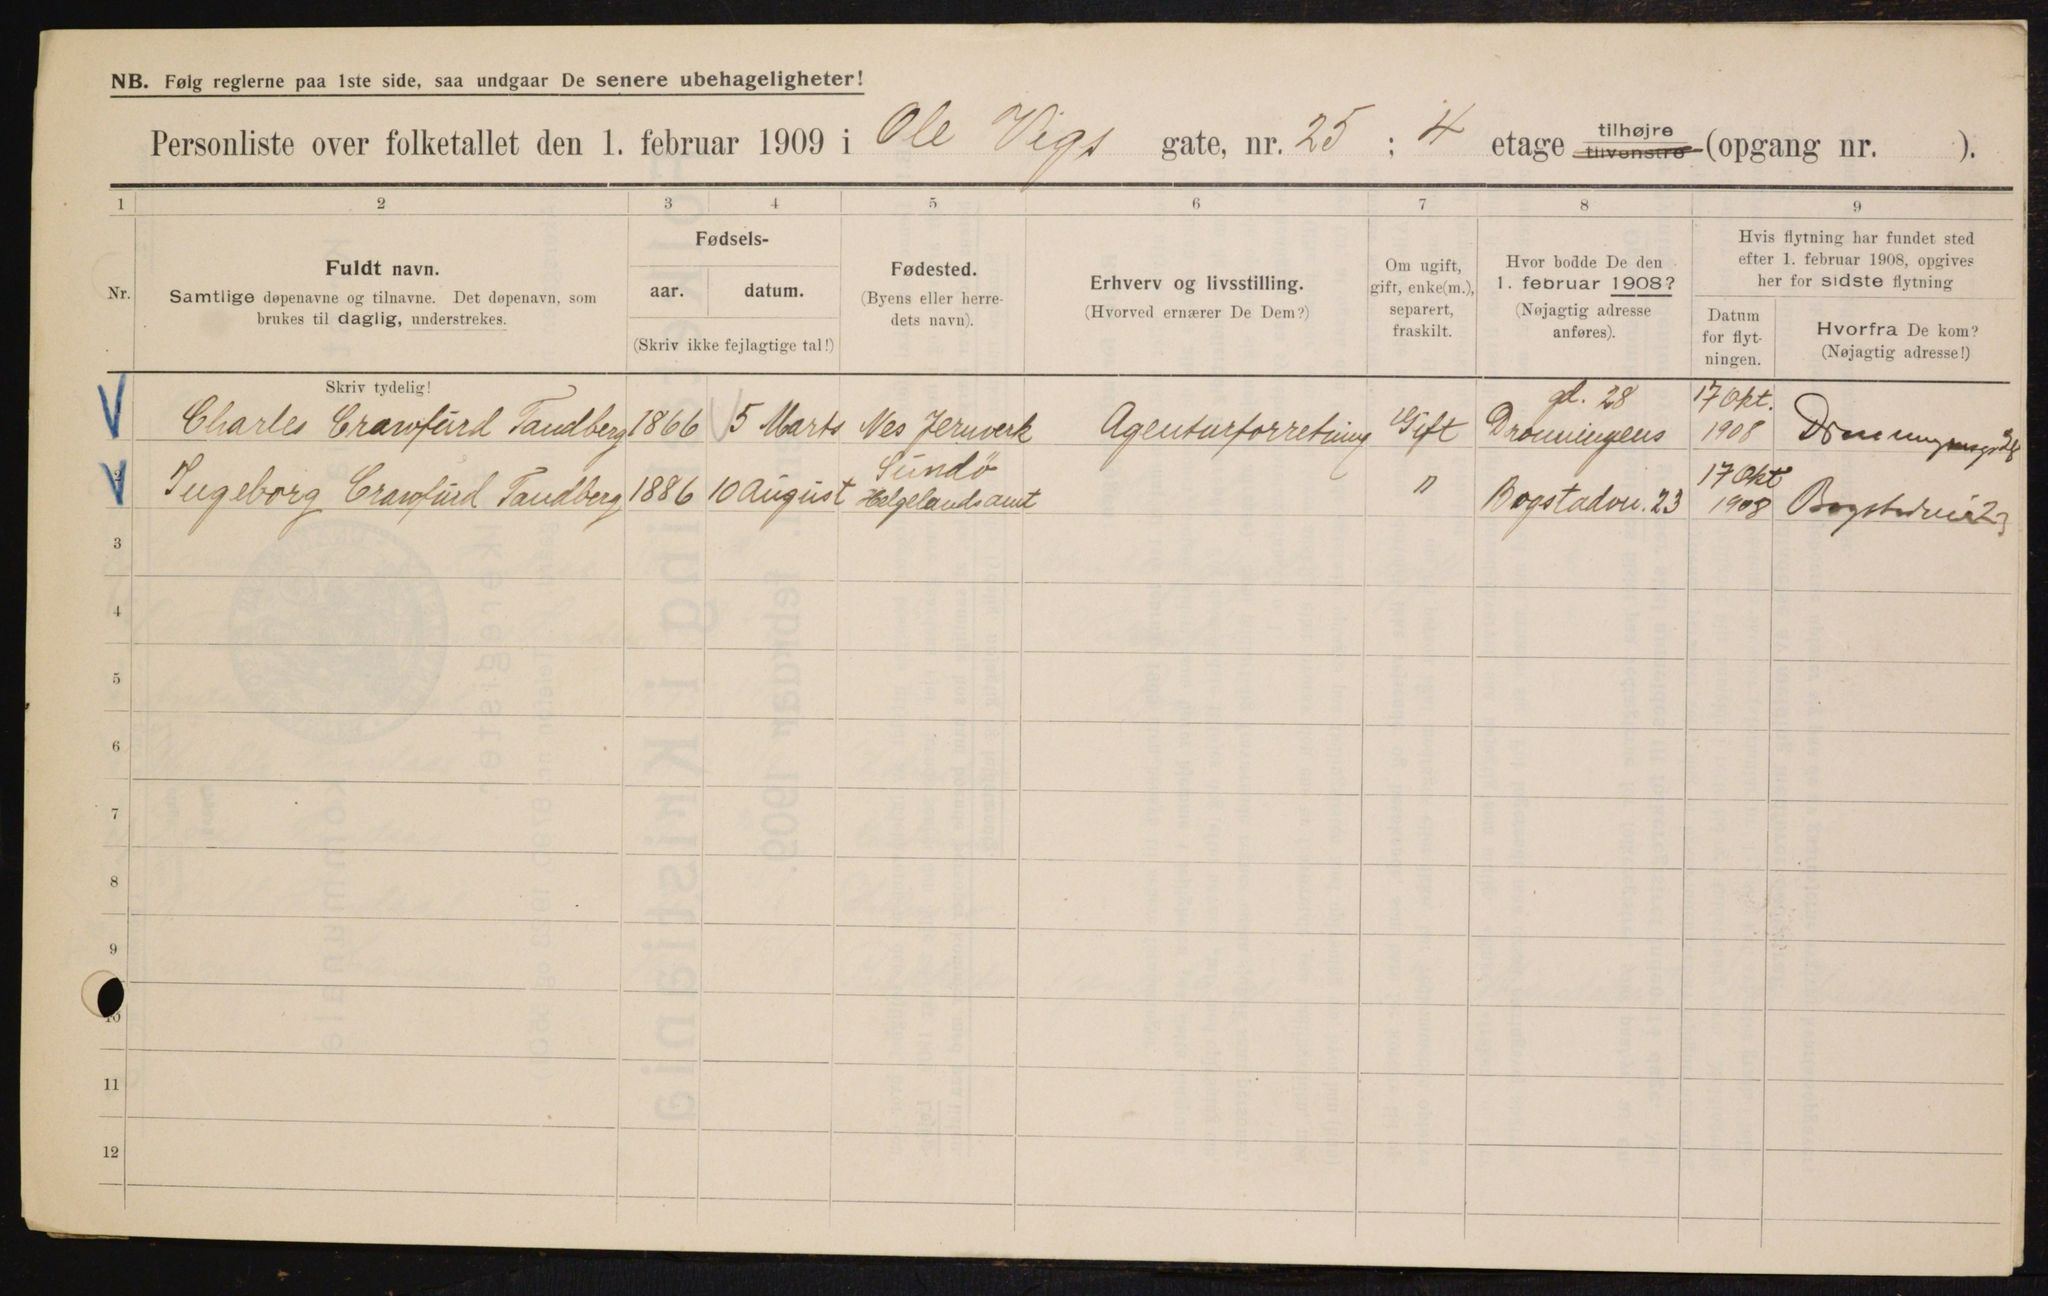 NB. Følg reglerne paa 1ste side, saa undgaar De senere ubehageligheter!
Personliste over folketallet den 1. februar 1909 i Ole Vigs gate, nr. 25 ; 4 etage tilhøjre tilvenstre (opgang nr. ).
1 2 3 4 5 6 7 8 9
Nr.
Fuldt navn.
Samtlige døpenavne og tilnavne. Det døpenavn, som
brukes til daglig, understrekes.
Fødsels-
aar. datum.
(Skriv ikke fejlagtige tal!)
Fødested.
(Byens eller herre-
dets navn).
Erhverv og livsstilling.
(Hvorved ernærer De Dem?)
Om ugift,
gift, enke(m.),
separert,
fraskilt.
Hvor bodde De den
1. februar 1908?
(Nøjagtig adresse
anføres).
Hvis flytning har fundet sted
efter 1. februar 1908, opgives
her for sidste flytning
Datum
for flyt-
ningen.
Hvorfra De kom?
(Nøjagtig adresse!)
Skriv tydelig!
Charles Crawfurd Tandberg 1866 5 Marts Nes Jernverk Agenturforretning Gift Dronningens gd. 28 17 Okt. 1908
2 Ingeborg Crawfurd Tandberg 1886 10 August Sundö Helgelands amt " Bogstadvn. 23 17 Okt 1908 Bogstadvei 23
3
4
5
6
7
8
9
10
11
12